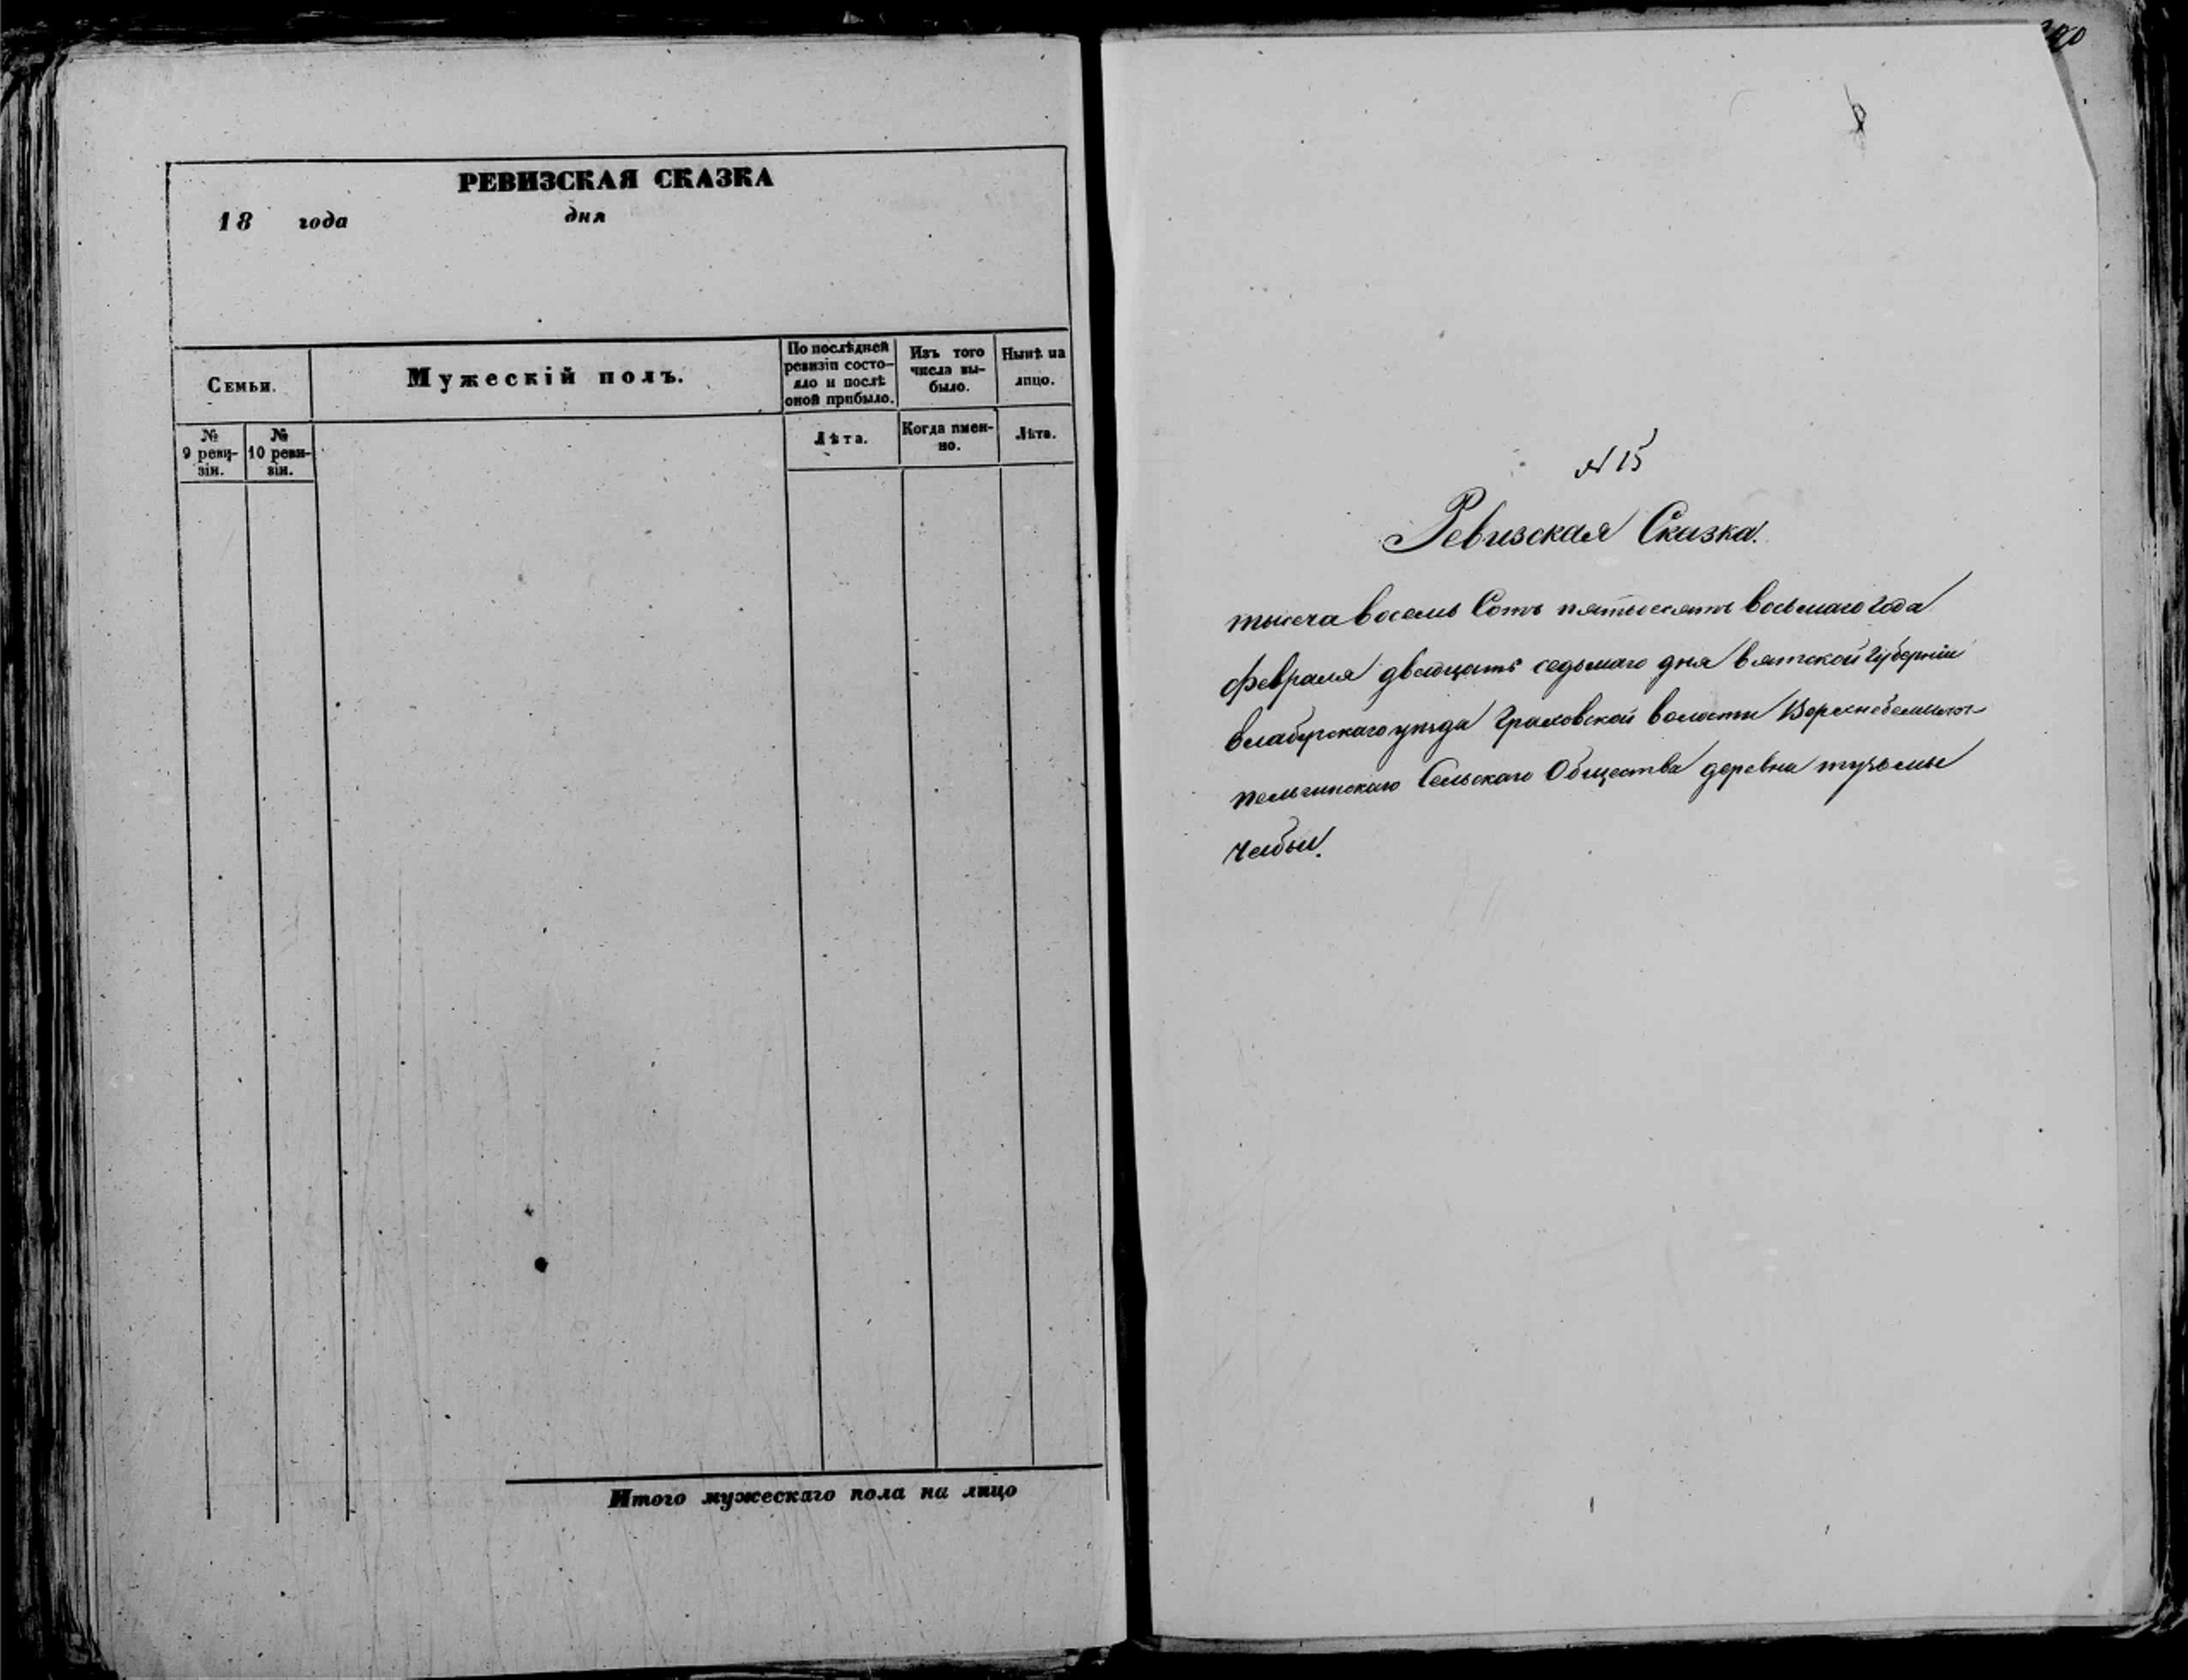 РЕВИЗСКАЯ СКАЗКА
18 года дня
Семьи.
Мужескій полъ.
По послѣдней
ревизіи состо-
яло и послѣ
оной прибыло.
Изъ того
числа вы-
было.
Нынѣ на
лицо.
№
9 реви-
зіи.
№
10 реви-
зіи.
Лѣта.
Когда имен-
но.
Лѣта.
Итого мужескаго пола на лицо
№ 15
Ревизская Сказка.
тысеча восемь Сотъ пятьдесятъ восьмаго года
февраля двадцать седьмаго дня вятской Губерніи
елабугскаго уѣзда Граховской волости
Сельскаго Общества деревни